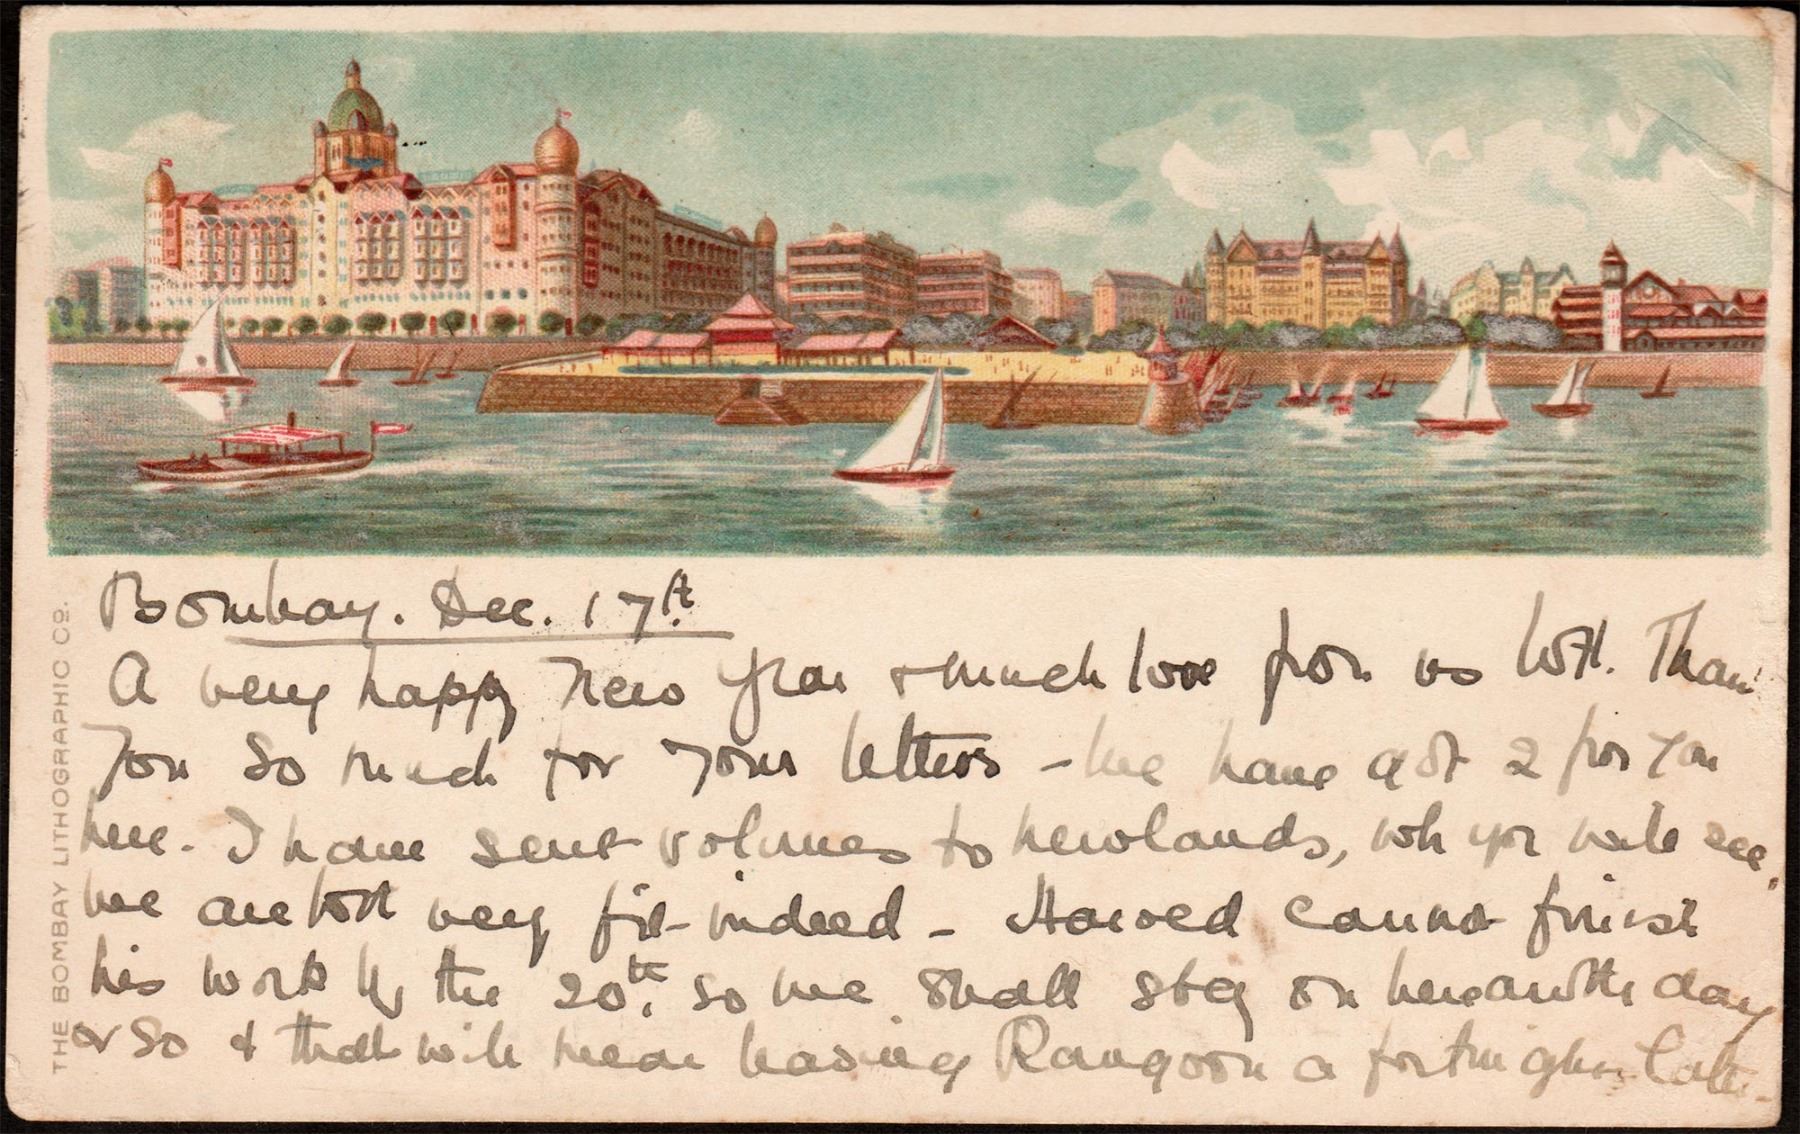 THE BOMBAY LITHOGRAPHIC Co.
Bombay. Dec. 17th
A very happy New Year & much love from us both. Thank
you so much for your letters - we have got 2 from you
here. I have sent volumes to Newlands, wh you will see.
We are both very fit indeed - Harold cannot finish
his work by the 20th, so we shall stay on here another day
or so & that will mean leaving Rangoon a fortnight later.